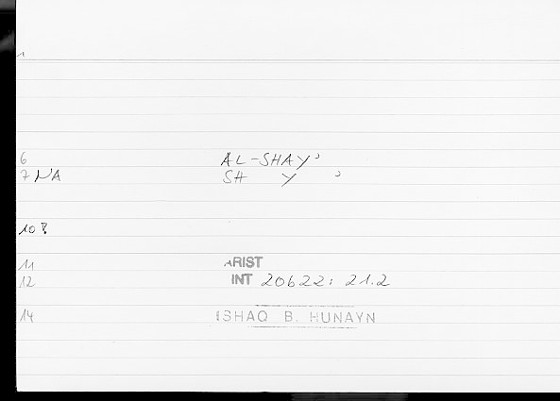 1
6 AL-SHAYʾ
7 NA SH Y ʾ
10 ?
11 ARIST
12 INT 20622: 21.2
14 ISHAQ B. HUNAYN